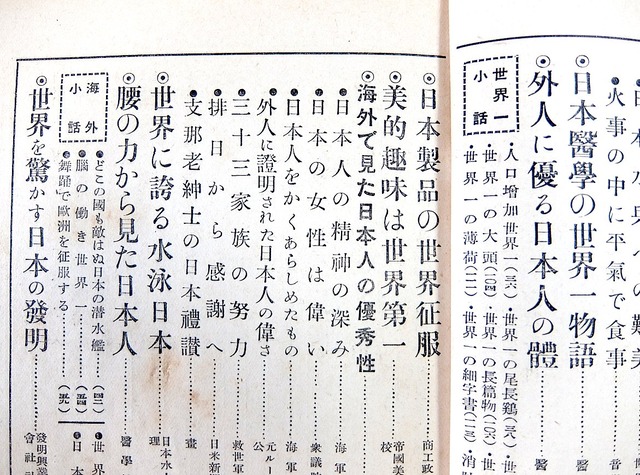 火事の中に平氣で食事
◉日本醫學の世界一物語
◉外人に優る日本人の體 醫
世界一小話
・人口增加世界一(三六)・世界一の尾長鷄(三八)・世
・世界一の大頭(二〇四)・世界一の長篇物(二六)・世
・世界一の薄荷(二一)・世界一の細字書(二三)・消
◉日本製品の世界征服 商工政
◉美的趣味は世界第一 帝國美 校
◉海外で見た日本人の優秀性
●日本人の精神の深み 海軍
●日本の女性は偉い 衆議院
●日本人をかくあらしめたもの 海軍
●外人に證明された日本人の偉さ 元ルー 公
●三十三家族の努力 救世軍
●排日から感謝へ 日米新
●支那老紳士の日本禮讃 畫
◉世界に誇る水泳日本 日本水 理
◉腰の力から見た日本人 醫學
海外小話
●どこの國も敵はぬ日本の潜水艦
●腦の働き世界一
●舞踊で歐洲を征服する
●世界
●日本
◉世界を驚かす日本の發明 發明興業 會社社